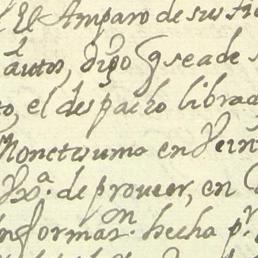 El Amparo de sus tie
autos, digo q̃ se a de s
to, el despacho librad
Monctezuma en Vein
Exª. de proveer, en
informaon. hecha pr.